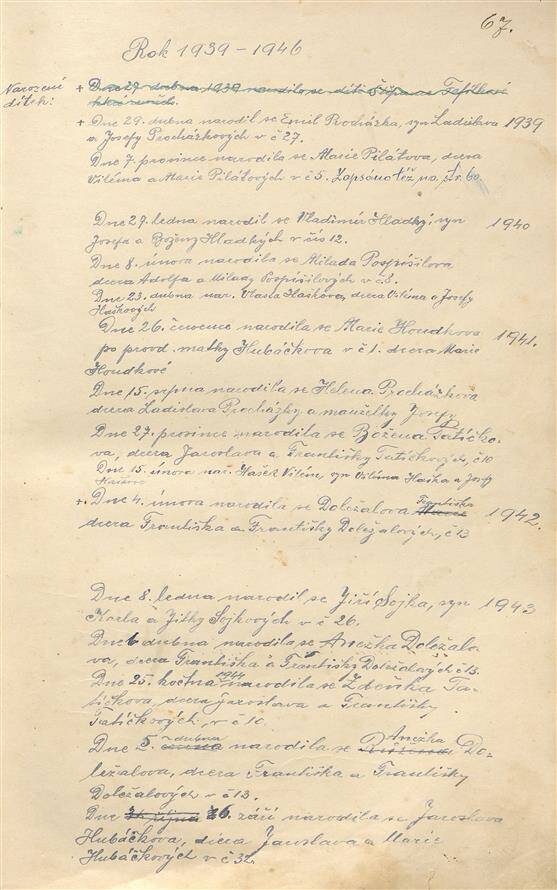 67.
Rok 1939 – 1946
Narození
dítek:
+ Dne 29. dubna 1939 narodilo se dítě
+ Dne 29. dubna narodil se Emil Procházka, syn Ladislava 1939
a Josefy Procházkových v č 27.
Dne 7. prosince narodila se Marie Pilátova, dcera
Viléma a Marie Pilátových v č 5. Zapsáno též na str. 60.
Dne 29. ledna narodil se Vladimír Hladký, syn 1940
Josefa a Boženy Hladkých v čís 12.
Dne 8. února narodila se Milada Pospíšilova
dcera Adolfa a Milady Pospíšilových v č 8.
Dne 23. dubna nar. Vlasta Haškova, dcera Viléma a Josefy
Haškových
Dne 26. července narodila se Marie Houdkova 1941.
po provd. matky Hubáčkova v č 1. dcera Marie
Houdkové
Dne 15. srpna narodila se Helena Procházkova
dcera Ladislava Procházky a manželky Josefy
Dne 27. prosince narodila se Božena Tatíčko-
va, dcera Jaroslava a Františky Tatíčkových, č 10
Dne 15. února nar. Hašek Vilém, syn Viléma Haška a Josefy
+ Dne 4. února narodila se Doležalova Františka 1942.
dcera Františka a Františky Doležalových, č 13
Dne 8. ledna narodil se Jiří Sojka, syn 1943
Karla a Jitky Sojkových v č 26.
Dne 6 dubna narodila se Anežka Doležalo-
va, dcera Františka a Františky Doležalových č 13.
Dne 25. května 1944 narodila se Zdeňka Ta-
tíčkova, dcera Jaroslava a Františky
Tatíčkových, v č 10.
Dne 5. dubna narodila se Anežka Do-
ležalova, dcera Františka a Františky
Doležalových v č 13.
Dne 31. října 26. září narodila se Jaroslava
Hubáčkova, dcera Jaroslava a Marie
Hubáčkových v č 32.